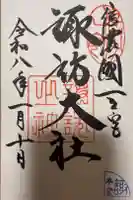 信濃國一之宮
諏訪大社
令和八年一月十日